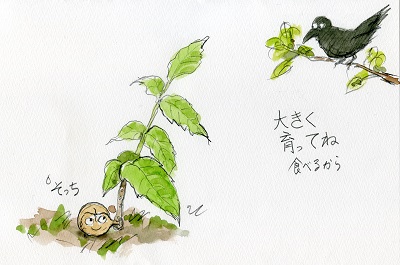 大きく
育ってね
食べるから
そっち